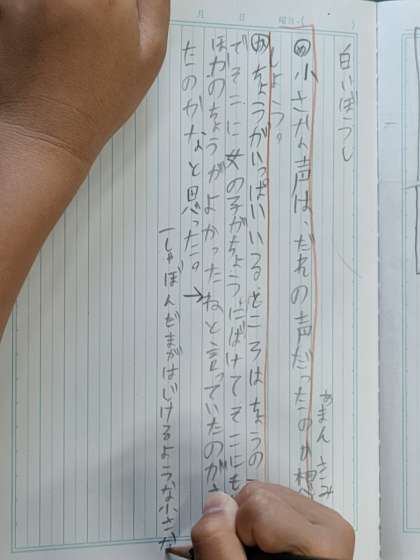 月 日 曜日・( )
白いぼうし
あまん きみ
め 小さな声は、だれの声だったのか想
しよう。
か ちょうがいっぱいいるところはちょうの
でそこに女の子がちょうにばけてそこにも
ほかのちょうがよかったねと言っていたのが
たのかなと思った。
→しゃぼんだまがはじけるような小さな